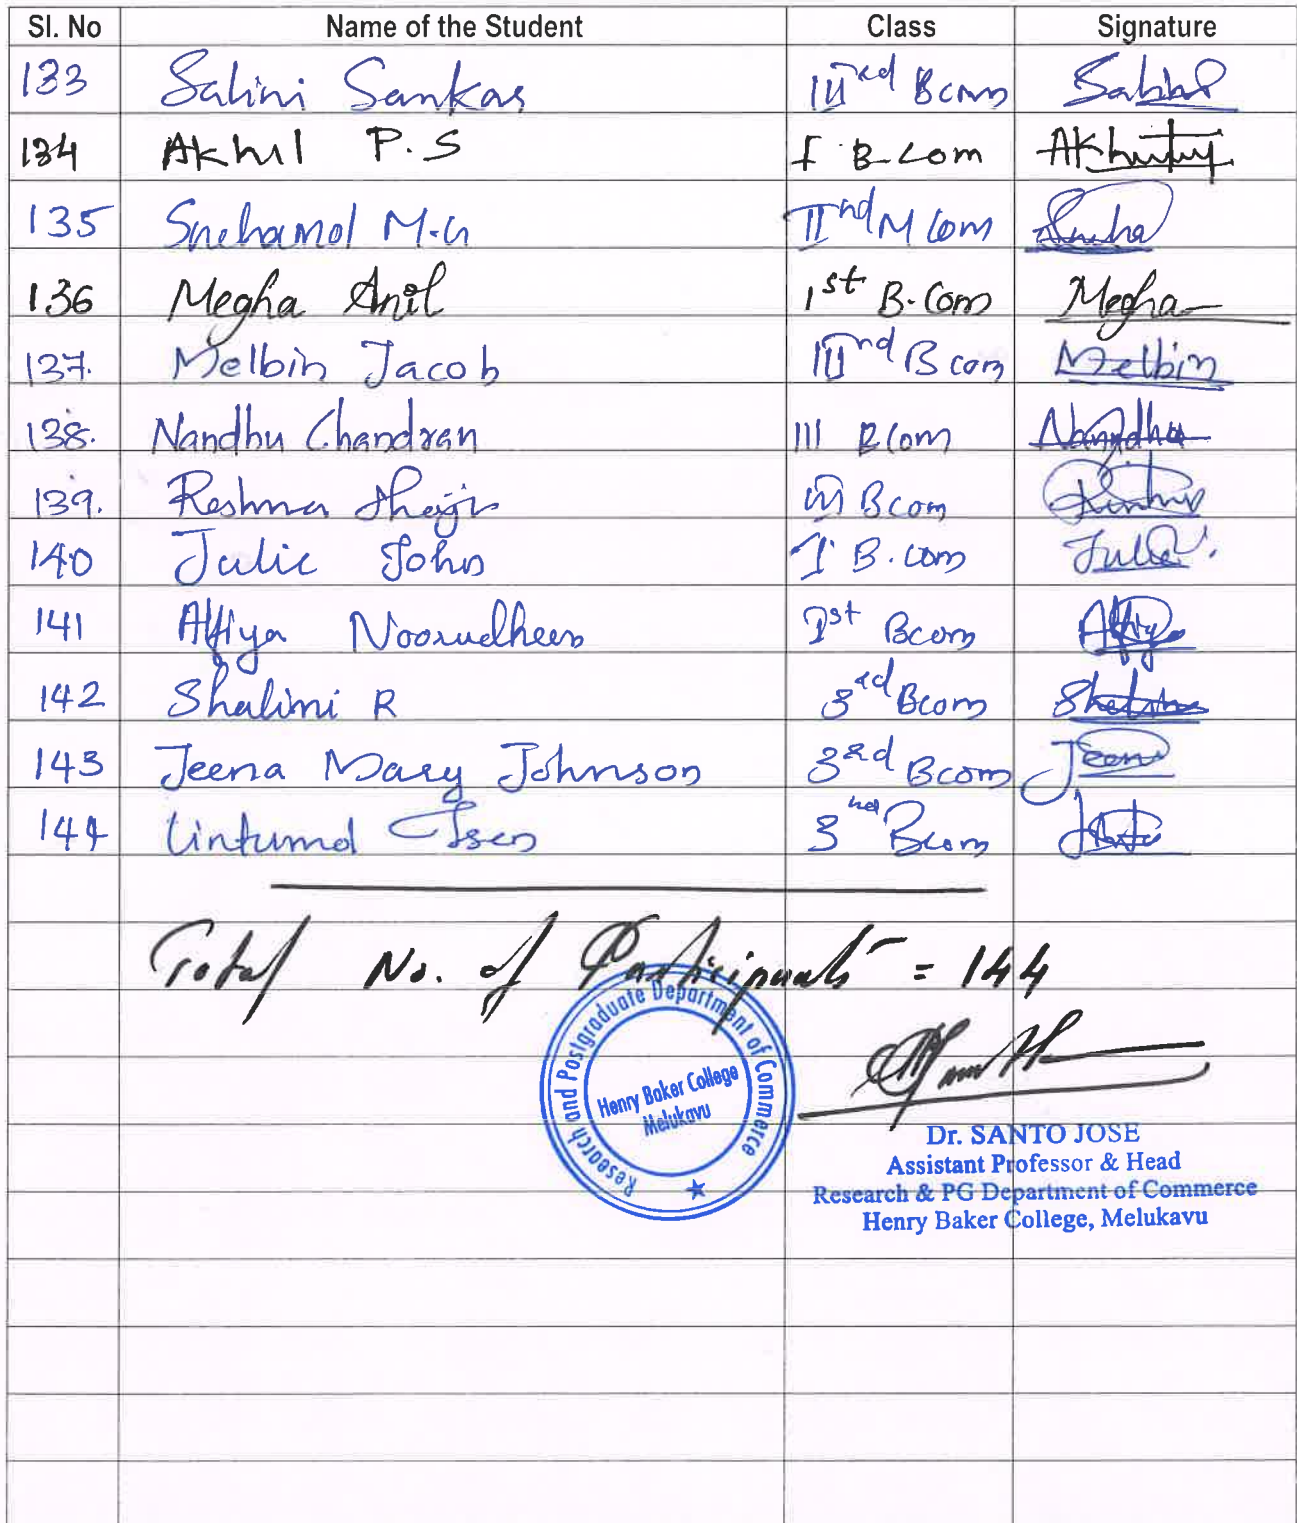 Sl. No Name of the Student Class Signature
133 Salini Sankar IIIrd Bcom Salini
134 Akhil P.S I B.Com
135 Snehamol M.G IInd M Com Sneha
136 Megha Anil 1st B.Com Megha
137. Melbin Jacob IIInd Bcom Melbin
138. Nandhu Chandran III BCom Nandhu
139. Reshma Shaji III Bcom
140 Julie John I B.com Julie
141 Alfiya Noorudheen Ist Bcom Alfiya
142 Shalimi R 3rd Bcom
143 Jeena Mary Johnson 3rd Bcom Jeena
144 3nd Bcom
Total No. of Participants = 144
Research and Postgraduate Department of Commerce
Henry Baker College
Melukavu
Dr. SANTO JOSE
Assistant Professor & Head
Research & PG Department of Commerce
Henry Baker College, Melukavu